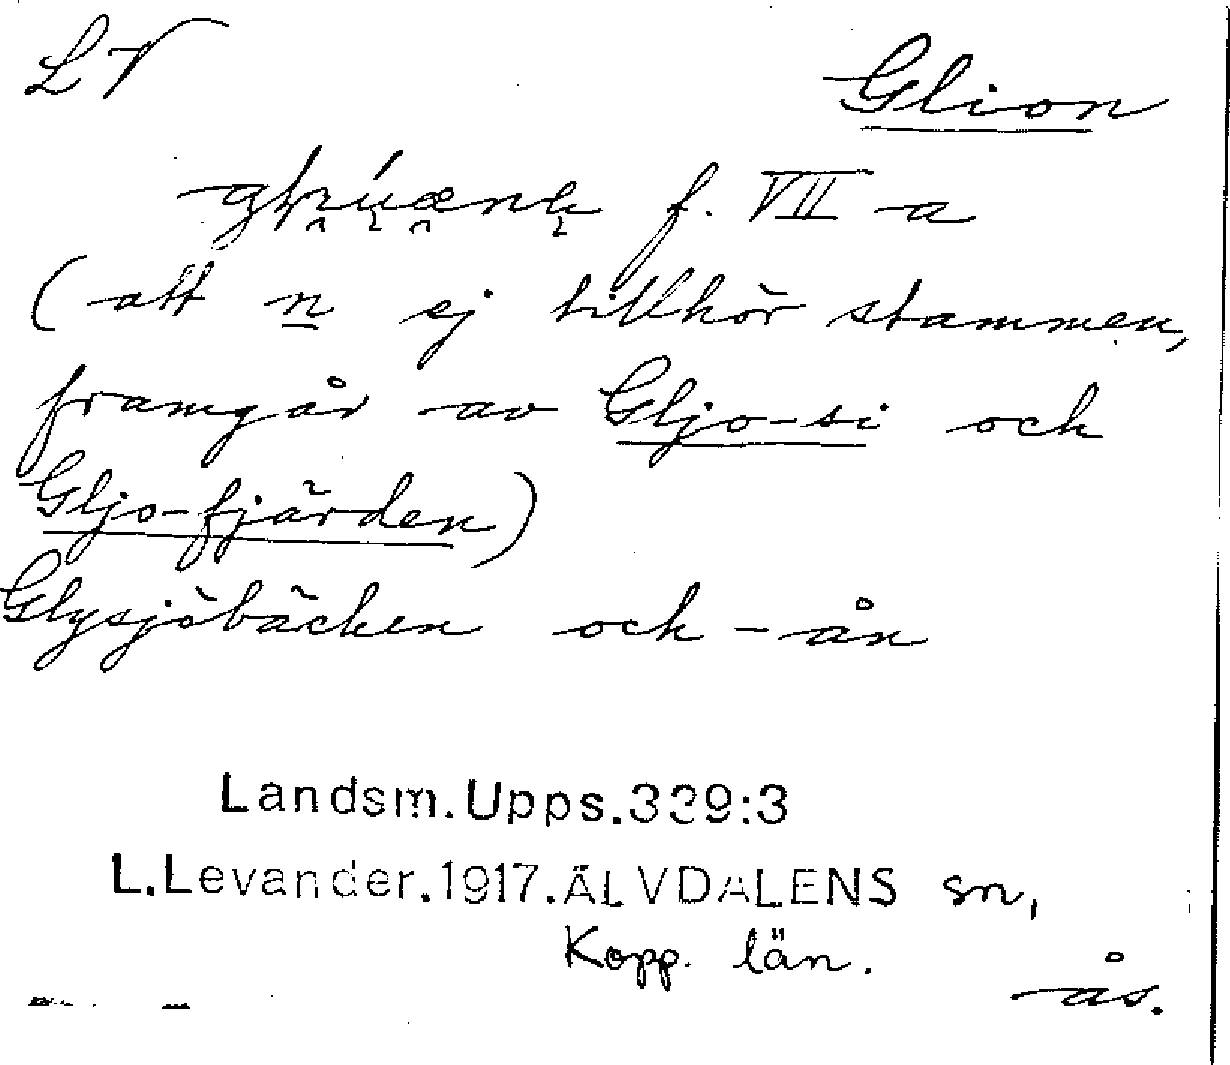 LV
Glion
f. VII a
(att n ej tillhör stammen,
framgår av Gljo-si och
Gljo-fjärden)
Glysjöbäcken och -ån
Landsm.Upps.339:3
L.Levander.1917.ÄLVDALENS sn,
Kopp. län.
ås.